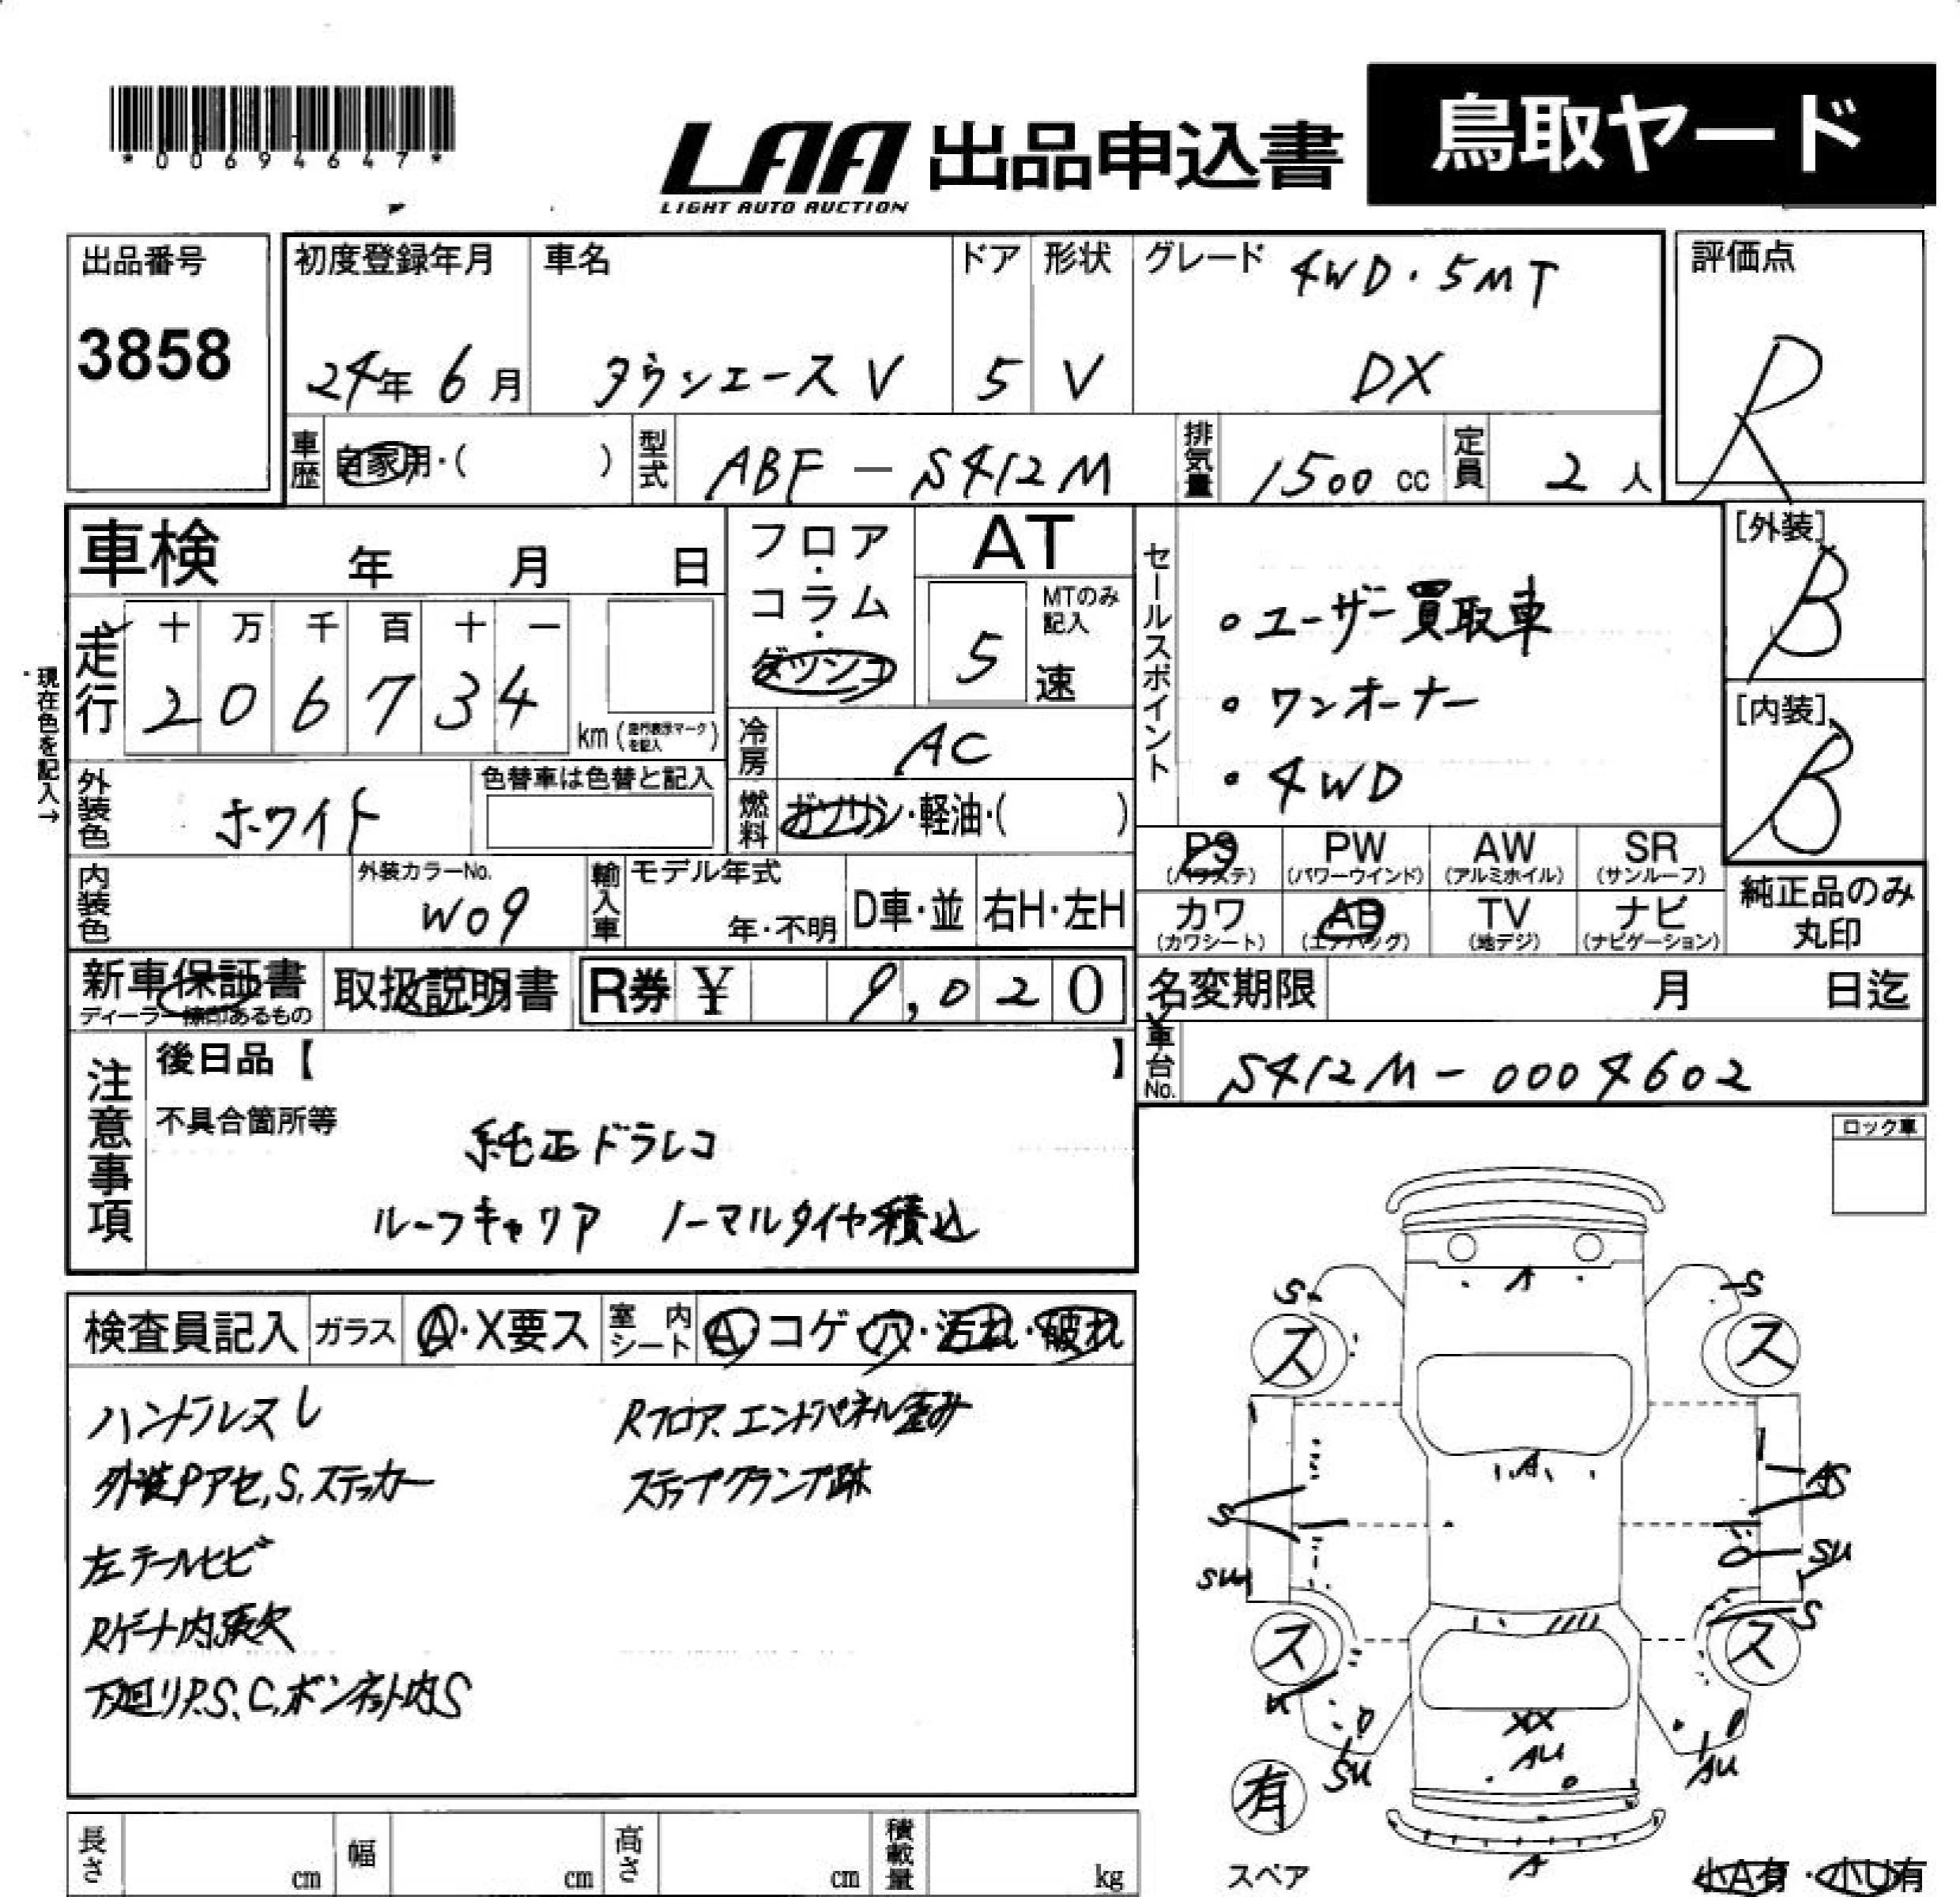 *00694647*
LAA 出品申込書 鳥取ヤード
LIGHT AUTO AUCTION
出品番号 初度登録年月 車名 ドア 形状 グレード 4WD・5MT 評価点
3858 24年 6月 タウンエース V 5 V DX R
車歴 自家用・( ) 型式 ABF - S412M 排気量 1500 cc 定員 2 人
車検 年 月 日 フロア・コラム・ダッシュ AT セールスポイント [外装] B
MTのみ記入 5 速
・ユーザー買取車
・ワンオーナー
・4WD
[内装] B
走行 十 万 千 百 十 一
2 0 6 7 3 4 km
現在色を記入→
冷房 AC
外装色 ホワイト 色替車は色替と記入 燃料 ガソリン・軽油・( )
PS (パワステ) PW (パワーウインド) AW (アルミホイル) SR (サンルーフ)
内装色 外装カラーNo. W09 輸入車 モデル年式 年・不明 D車・並 右H・左H
カワ (カワシート) AB (エアバッグ) TV (地デジ) ナビ (ナビゲーション) 純正品のみ丸印
新車保証書 取扱説明書 R券 ¥ 9,020 名変期限 月 日迄
ディーラー 印あるもの
車台No. S412M-0004602
注意事項 後日品【 】
不具合箇所等
純正ドラレコ
ルーフキャリア ノーマルタイヤ積込
ロック車
検査員記入 ガラス A・X要ス 室内シート A コゲ・穴・汚れ・破れ
ハンドルスレ Rフロア、エンドパネル歪み
外装Pアセ,S,ステッカー ステップクランプ跡
左テールヒビ
Rゲート内張欠
下廻リP.S、C,ボンネット内S
A
S S
ス ス
A
S AS
SU SU
S
ス ス
U
XX
SU AU AU
有
スペア
A
小A有・小U有
長さ cm 幅 cm 高さ cm 積載量 kg